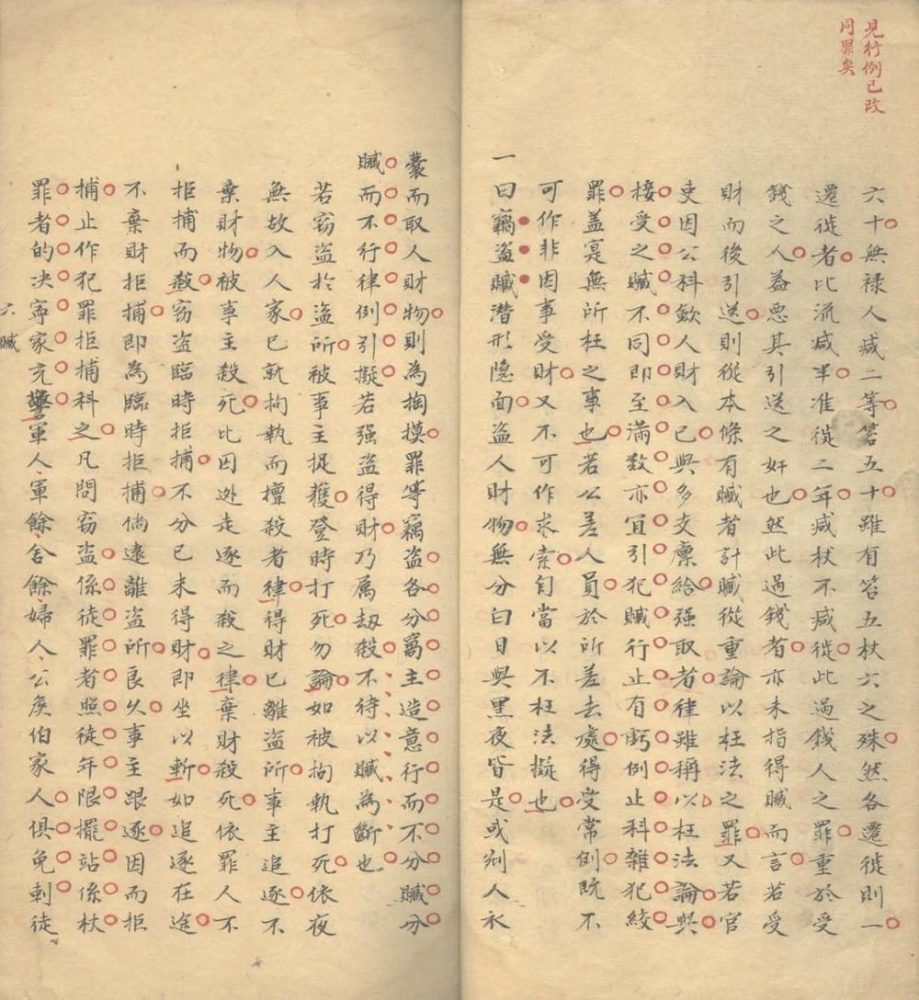 見行例已改
同罪矣
六十無禄人减二等笞五十雖有笞五杖六之殊然各遷徙則一
遷徙者比流减半准徒二年减杖不减徙此過錢人之罪重於受
錢之人益惡其引送之奸也然此過錢者亦未指得贓而言若受
財而後引送則從本條有贓者計贓從重論以枉法之罪又若官
吏因公科歛人財入已與多支廪給强取者律雖稱以枉法論與
接受之贓不同即至滿数亦宜引犯贓行止有虧例止科雜犯絞
罪盖寔無所枉之事也若公差人員於所差去處得受常例既不
可作非因事受財又不可作求索自當以不枉法擬也
一曰竊盗贓潛形隠面盗人財物無分白日與黑夜皆是或剜人衣
囊而取人財物則為掏摸罪等竊盗各分窩主造意行而不分贓分
贓而不行律例引擬若强盗得財乃属刼殺不待以贓為斷也
若窃盗於盗所被事主捉獲登時打死勿論如被拘執打死依夜
無故入人家已就拘執而擅殺者律得財已離盗所事主追逐不
棄財物被事主殺死比因逃走逐而殺之律棄財殺死依罪人不
拒捕而殺窃盗臨時拒捕不分已未得財即坐以斬如追逐在途
不棄財拒捕即為臨時拒捕倘遠離盗所良久事主跟逐因而拒
捕止作犯罪拒捕科之凡問窃盗係徒罪者照徒年限擺站係杖
罪者的决寧家充警軍人軍餘舍餘婦人公侯伯家人俱免刺徒
六贓